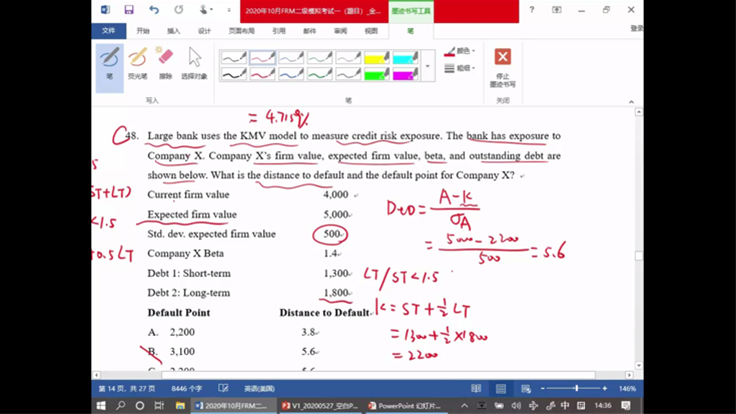 2020年10月FRM二级模拟考试一（题目）_全...
墨迹书写工具
文件
开始
插入
设计
页面布局
引用
邮件
审阅
视图
笔
登录
笔
荧光笔
擦除
选择对象
写入
笔
颜色
粗细
停止
墨迹书写
关闭
= 4.715%
48. Large bank uses the KMV model to measure credit risk exposure. The bank has exposure to
Company X. Company X's firm value, expected firm value, beta, and outstanding debt are
shown below. What is the distance to default and the default point for Company X?
Current firm value 4,000
Expected firm value 5,000
Std. dev. expected firm value 500
Company X Beta 1.4
Debt 1: Short-term 1,300
Debt 2: Long-term 1,800
Default Point Distance to Default
A. 2,200 3.8
B. 3,100 5.6
.5
ST+LT)
<1.5
+0.5LT
DtD = A-K / σA
= 5000-2200 / 500 = 5.6
LT/ST<1.5
K = ST + 1/2 LT
= 1300 + 1/2 × 1800
= 2200
第 14 页，共 27 页
8446 个字
英语(美国)
146%
2020年10月FRM二...
V1_20200527_空白P...
PowerPoint 幻灯片...
中
14:36